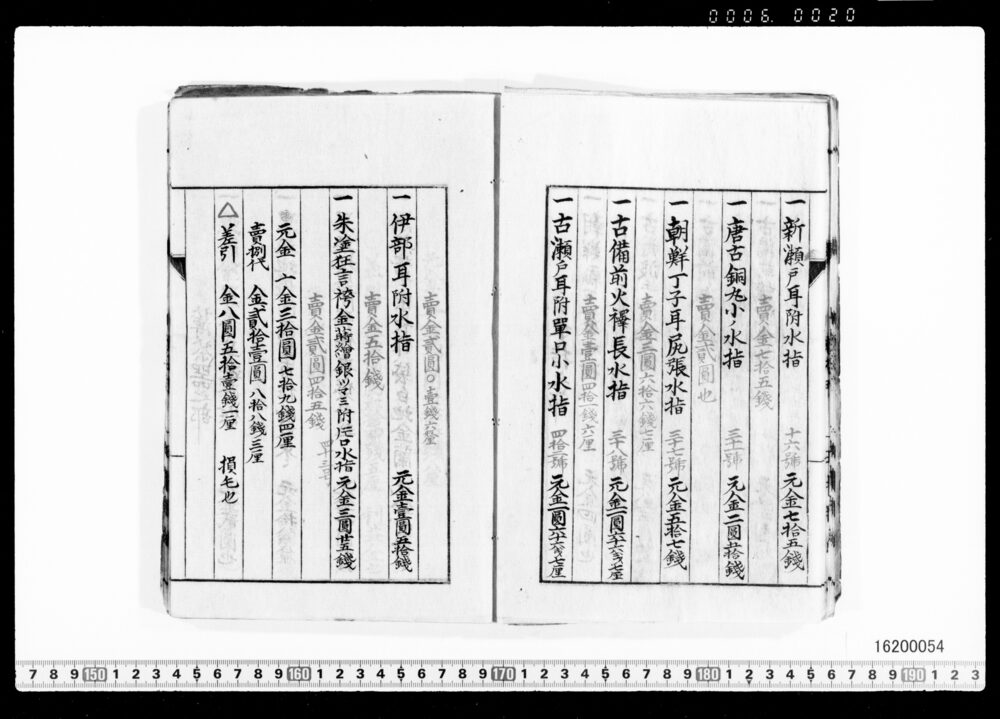 0006. 0020
一 新瀬戸耳附水指 十六號 元金七拾五錢
賣金七拾五錢
一 唐古銅丸小ノ水指 三十一號 元金二圓五拾錢
賣金貳圓也
一 朝鮮丁子耳尻張水指 三十七號 元金五拾七錢
賣金三圓六拾六錢七厘
一 古備前火襷長水指 三十八號 元金一圓六十六錢七厘
賣金壹圓四拾錢六厘
一 古瀬戸耳附單口小水指 四拾二號 元金一圓六十六錢七厘
賣金貳圓〇壹錢六厘
一 伊部耳附水指 元金壹圓五拾錢
賣金五拾錢
一 朱塗狂言袴金蒔繪銀ツマミ附 水指 元金三圓廿五錢
賣金貳圓四拾五錢
元金 金三拾圓七拾九錢四厘
賣捌代 金貳拾壹圓八拾八錢三厘
△ 差引 金八圓五拾壹錢一厘 損毛也
16200054
7 8 9 150 1 2 3 4 5 6 7 8 9 160 1 2 3 4 5 6 7 8 9 170 1 2 3 4 5 6 7 8 9 180 1 2 3 4 5 6 7 8 9 190 1 2 3